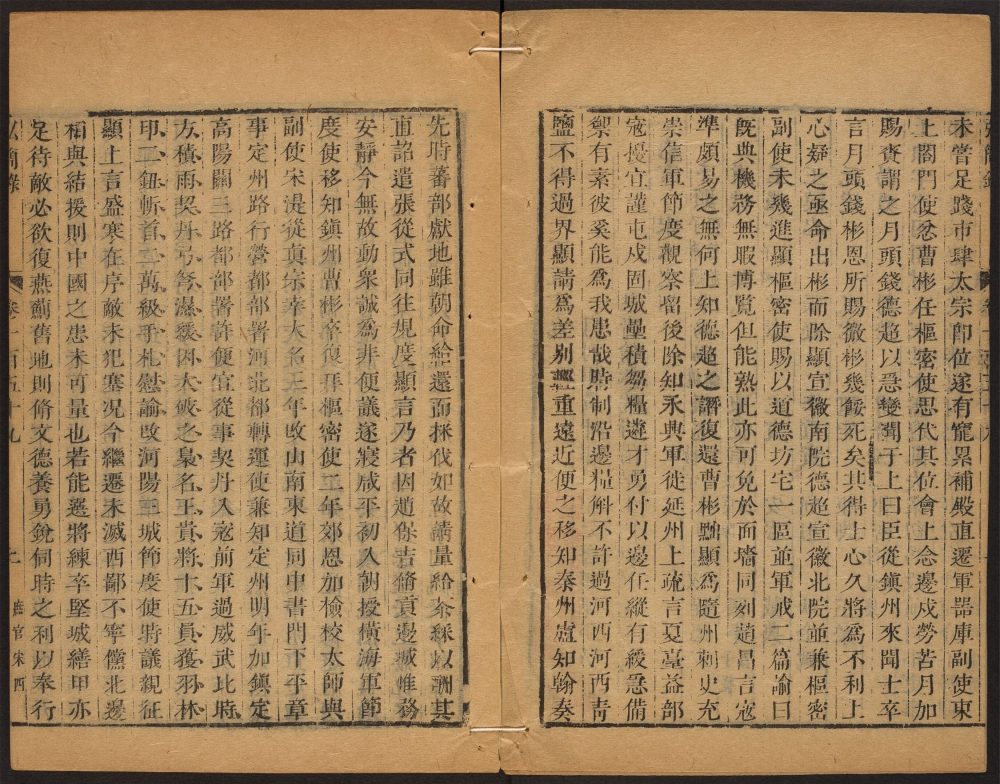 未嘗足踐市肆太宗卽位遂有寵累補殿直遷軍噐庫副使東
上閤門使忿曹彬任樞密使思代其位會上念邊戍勞苦月加
賜賚謂之月頭錢德超以急變聞于上曰臣從鎮州來聞士卒
言月頭錢彬恩所賜微彬幾餒死矣其得士心久將爲不利上
心疑之亟命出彬而除顯宣徽南院德超宣徽北院並兼樞密
副使未幾進顯樞密使賜以道德坊宅一區並軍戒二篇諭曰
旣典機務無暇博覽但能熟此亦可免於面墻同刻趙昌言寇
準頗易之無何上知德超之譖復還曹彬黜顯爲隨州刺史充
崇信軍節度觀察留後除知永興軍徙延州上疏言夏臺益部
寇擾宜謹屯戍固城壘積芻糧遴才勇付以邊任縱有緩急備
禦有素彼奚能爲我患哉時制沿邊糧斛不許過河西河西靑
鹽不得過界顯請爲差别輕重遠近便之移知秦州盧知翰奏
先時蕃部獻地雖朝命給還而採伐如故請量給茶綵以酬其
直詔遣張從式同往規度顯言乃者因趙保吉脩貢邊城惟務
安靜今無故動衆誠爲非便議遂寢咸平初入朝授橫海軍節
度使移知鎮州曹彬卒復拜樞密使二年郊恩加檢校太師與
副使宋湜從真宗幸大名三年改山南東道同中書門下平章
事定州路行營都部署河北都轉運使兼知定州明年加鎮定
高陽關三路都部署許便宜從事契丹入寇前軍過威武比時
方積雨契丹弓弩濕緩因大破之梟名王貴將十五員獲羽林
印二鈕斬首二萬級手札慰諭改河陽三城節度使時議親征
顯上言盛寒在序敵未犯塞況今繼遷未滅西鄙不寧儻北邊
相與結援則中國之患未可量也若能選將練卒堅城繕甲亦
足待敵必欲復燕薊舊地則脩文德養勇銳伺時之利以奉行
弘簡錄 卷一百五十九 二 庶官宋西